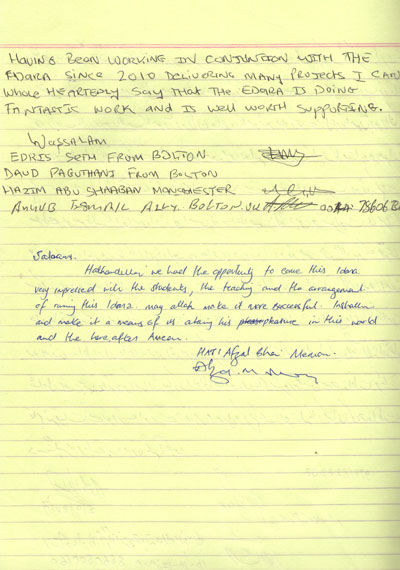 HAVING BEEN WORKING IN CONJUNTION WITH THE
EDARA SINCE 2010 DELIVERING MANY PROJECTS I CAN
WHOLE HEARTEDLY SAY THAT THE EDARA IS DOING
FANTASTIC WORK AND IS WELL WORTH SUPPORTING.
WASSALAM
EDRIS SETH FROM BOLTON
DAUD PAGUTHANI FROM BOLTON
HAZIM ABU SHAABAN MANCHESTER
ISMAIL ALLY BOLTON. UK
Salaam.
we had the opportunity to come this Idara
very impressed with the students, the teaching and the arrangement
of runing this Idara. may allah make it more successful. Inshallah
and make it a means of us ataing his pleasure in this world
and the hereafter Ameen.
HAJI Afzal Bhai Memon.